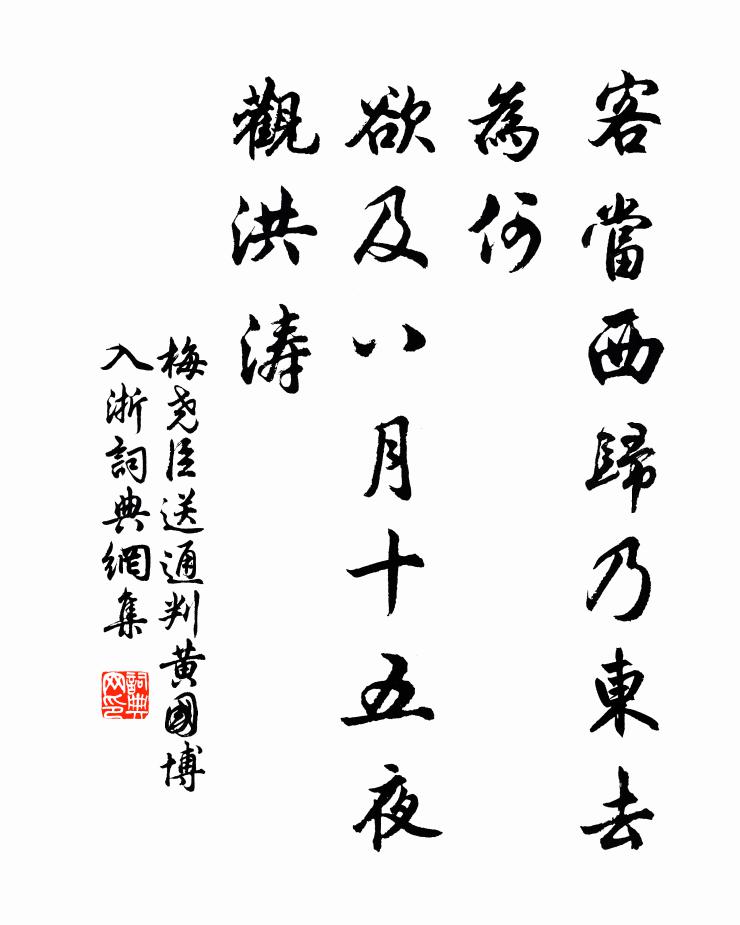 客當西歸乃東去
為何
欲及八月十五夜
觀洪濤
梅尧臣送通判黄國博
入浙詞典網集
詞典网印